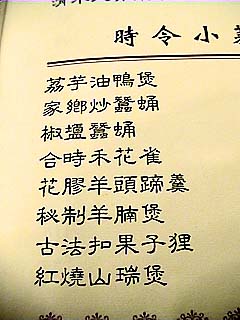 時令小
荔芋油鴨煲
家鄉炒蠶蛹
椒鹽蠶蛹
合時禾花雀
花膠羊頭蹄羹
秘制羊腩煲
古法扣果子狸
紅燒山瑞煲